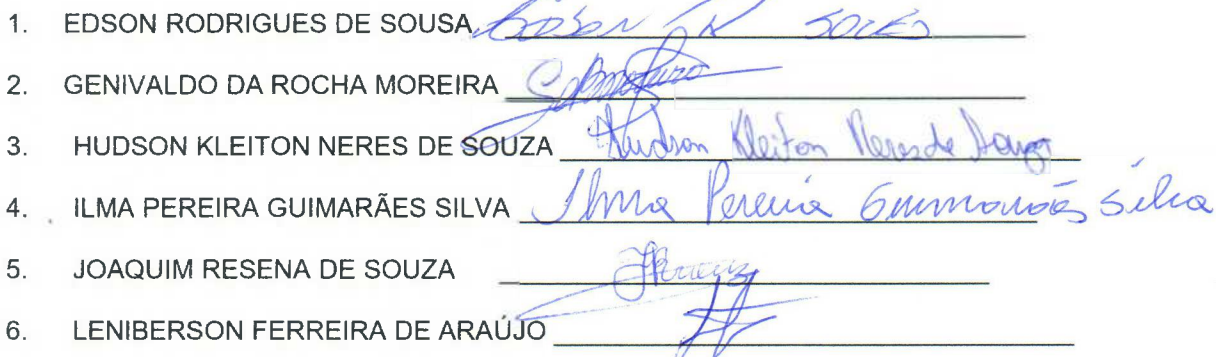 1. EDSON RODRIGUES DE SOUSA
2. GENIVALDO DA ROCHA MOREIRA
3. HUDSON KLEITON NERES DE SOUZA Hudson Kleiton Neres de Souza
4. ILMA PEREIRA GUIMARÃES SILVA Ilma Pereira Guimarães Silva
5. JOAQUIM RESENA DE SOUZA
6. LENIBERSON FERREIRA DE ARAÚJO